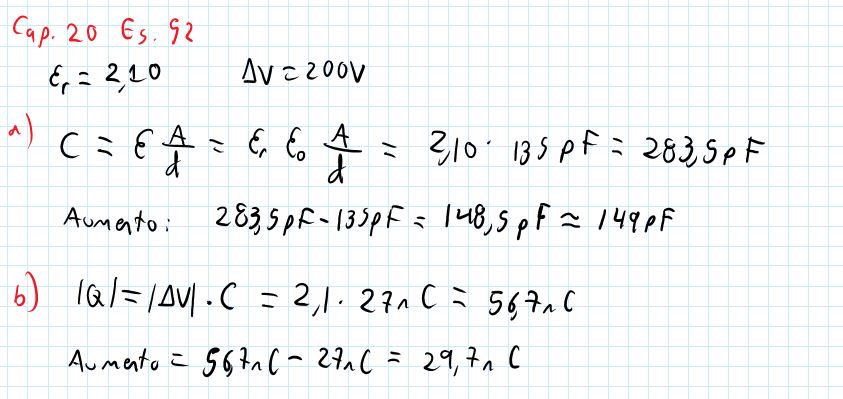 Cap. 20 Es. 92
εr = 2,10 ΔV = 200V
a) C = ε A/d = εr ε0 A/d = 2,10 · 135 pF = 283,5 pF
Aumento: 283,5 pF - 135 pF = 148,5 pF ≈ 149 pF
b) |Q| = |ΔV| · C = 2,1 · 27 n C = 56,7 n C
Aumento = 56,7 n C - 27 n C = 29,7 n C